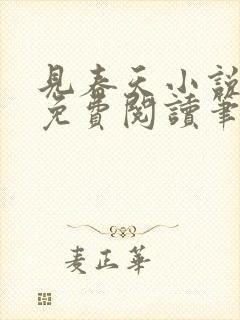 見春天小說
免費閱讀筆
麦正華